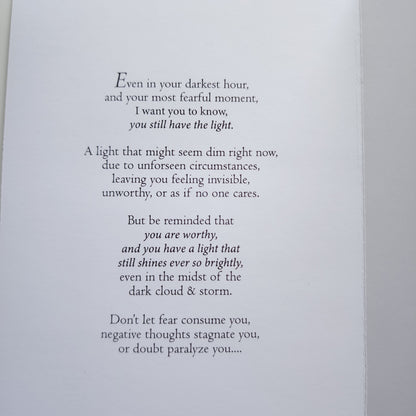 Even in your darkest hour,
and your most fearful moment,
I want you to know,
you still have the light.
A light that might seem dim right now,
due to unforseen circumstances,
leaving you feeling invisible,
unworthy, or as if no one cares.
But be reminded that
you are worthy,
and you have a light that
still shines ever so brightly,
even in the midst of the
dark cloud & storm.
Don't let fear consume you,
negative thoughts stagnate you,
or doubt paralyze you....